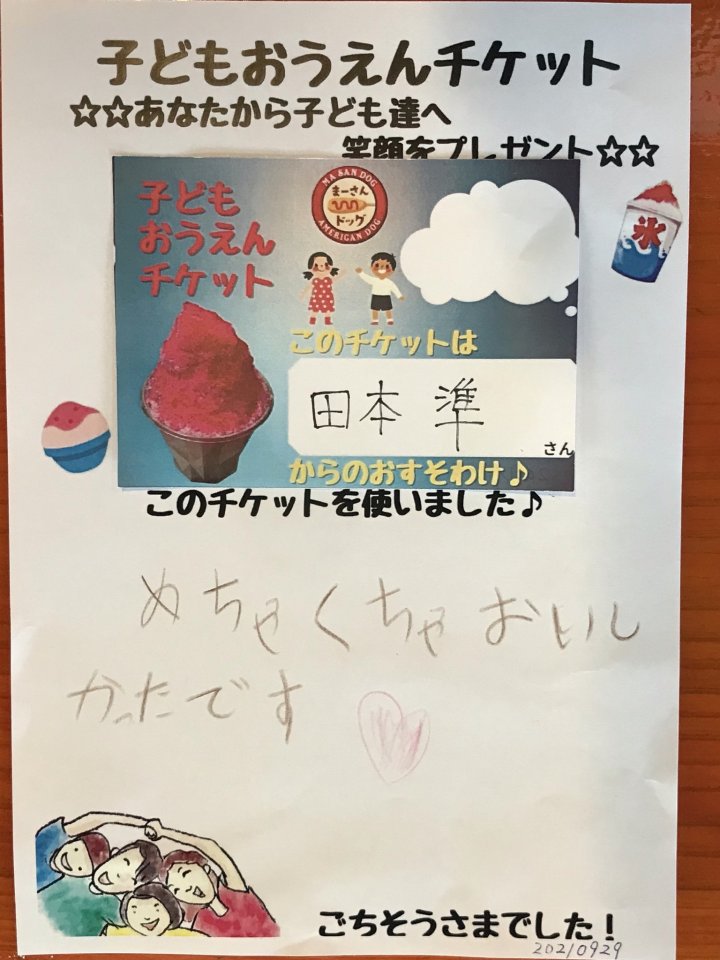 子どもおうえんチケット
☆☆あなたから子ども達へ
笑顔をプレゼント☆☆
子ども
おうえん
チケット
MA SAN DOG
まーさん
ドッグ
AMERICAN DOG
氷
このチケットは
田本 準
さん
からのおすそわけ♪
このチケットを使いました♪
めちゃくちゃおいし
かったです
ごちそうさまでした!
20210929